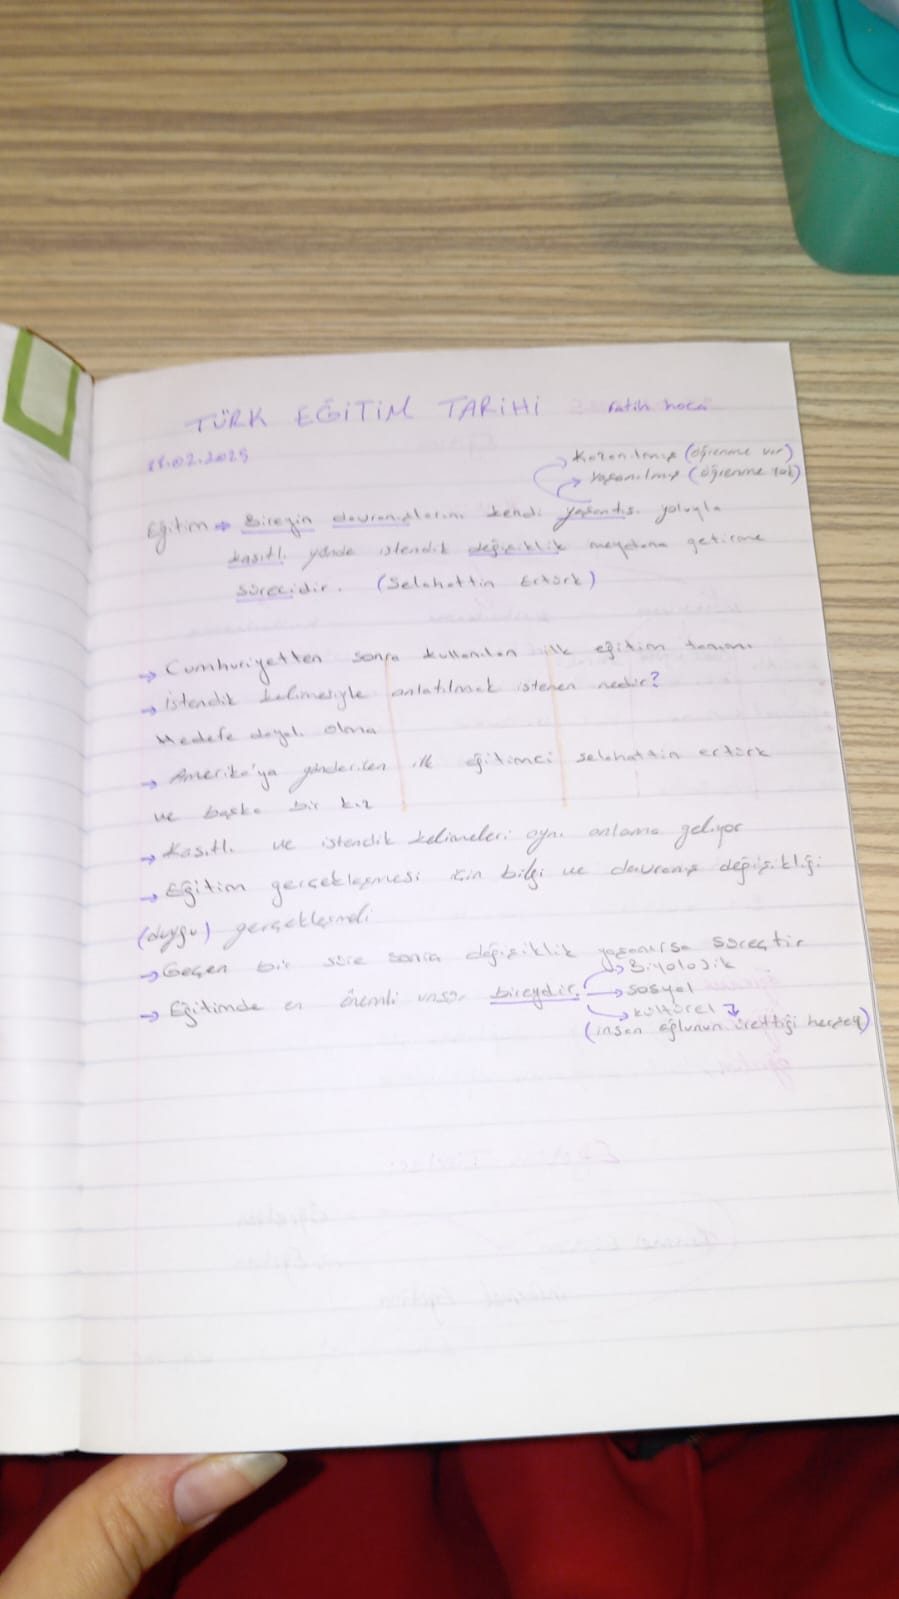 TÜRK EĞİTİM TARİHİ fatih hoca
.02.2025
→ Kazanılmış (öğrenme var)
→ Yaşanılmış (öğrenme yok)
Eğitim → Bireyin davranışlarını kendi yaşantısı yoluyla
kasıtlı yönde istendik değişiklik meydana getirme
sürecidir. (Selahattin Ertürk)
→ Cumhuriyetten sonra kullanılan ilk eğitim tanımı
→ istendik kelimesiyle anlatılmak istenen nedir?
Hedefe dayalı olma
→ Amerika'ya gönderilen ilk eğitimci selahattin ertürk
ve başka bir kız
→ Kasıtlı ve istendik kelimeleri aynı anlama geliyor
→ Eğitim gerçekleşmesi için bilgi ve davranış değişikliği
(duygu) gerçekleşmeli
→ Geçen bir süre sonra değişiklik yaşanırsa süreçtir
→ Biyolojik
→ Eğitimde en önemli unsur bireydir. → sosyal
→ kültürel ↴
(insan oğlunun ürettiği herşey)